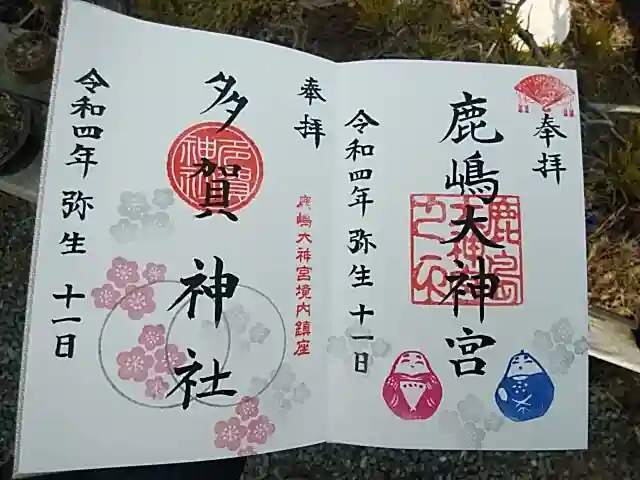 奉拝
鹿嶋大神宮
令和四年 弥生 十一日
奉拝
鹿嶋大神宮境内鎮座
多賀神社
令和四年 弥生 十一日